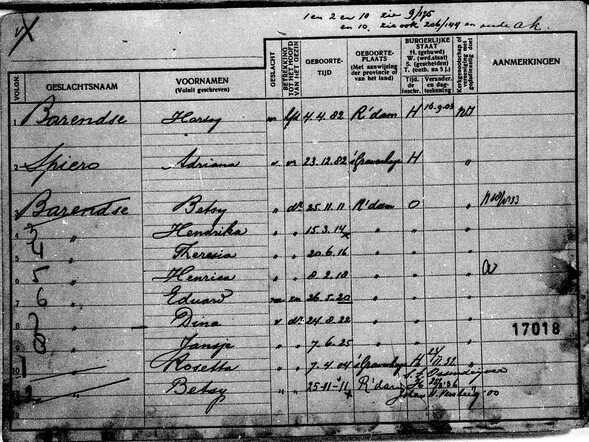 1 en 2 en 10 zie 9/175
en 10. zie ook 206/149 en oude a.k.
VOLGN. GESLACHTSNAAM VOORNAMEN (Voluit geschreven) GESLACHT BETREKKING TOT HET HOOFD VAN HET GEZIN GEBOORTE-TIJD GEBOORTE-PLAATS (Met aanwijzing der provincie of van het land) BURGERLIJKE STAAT H. (gehuwd) W. (wed.staat) S. (gescheiden) T. (ontb. na 5 j.) Tijd. de inschr. Verander. en dag-teekening Kerkgenootschap AANMERKINGEN
1 Barendse Hartog m hfd 4.4.82 R'dam H 16.9.03 NI
2 Spiero Adriana v vr 23.12.82 's Gravenhage H "
3 Barendse Betsy " dr 25.11.11 R'dam O "
4 " Hendrika " " 15.3.14 " " "
5 " Theresia " " 20.6.16 " " "
6 " Henrica " " 8.2.18 " " "
7 " Eduard m zn 26.5.20 " " "
8 " Dina v dr 24.8.22 " " "
" Jansje " " 7.6.25 " " "
17018
10 " Rosetta " " 7.4.04 's Gravenhage H
" Betsy " " 25-11-11 R'dam